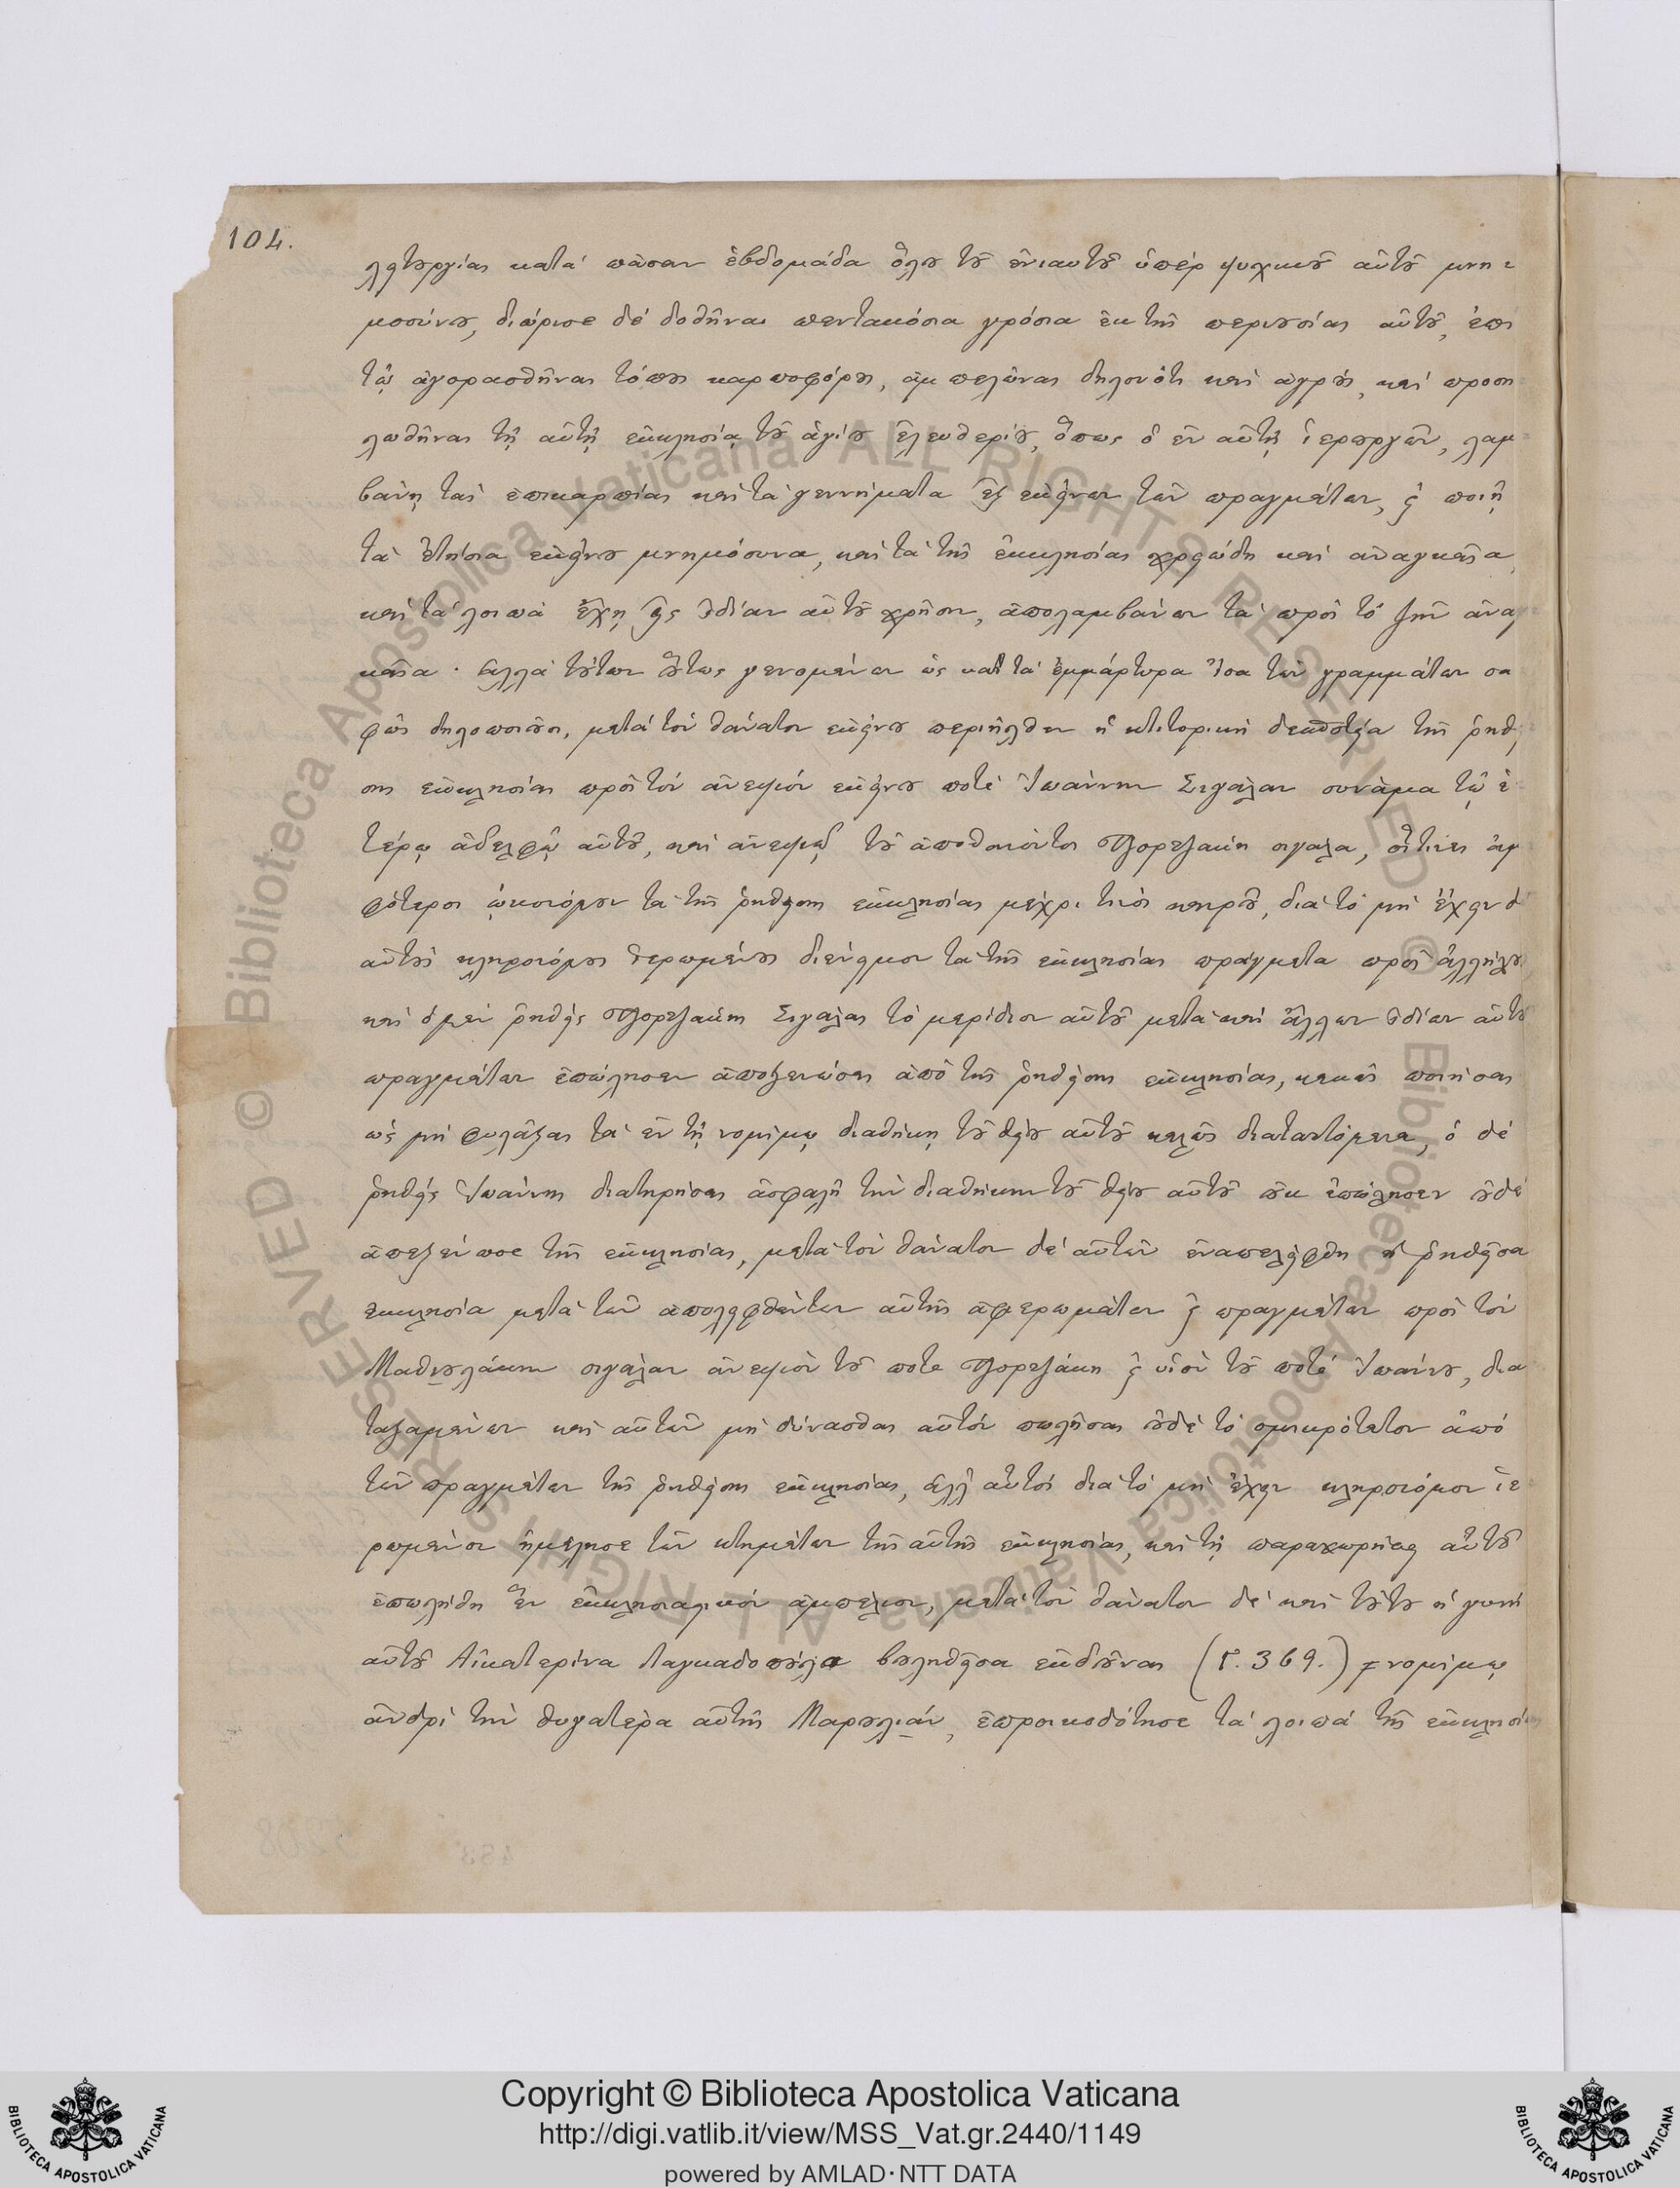 104.
λειτουργίας κατά πᾶσαν ἑβδομάδα ὅλου τοῦ ἐνιαυτοῦ ὑπέρ ψυχικοῦ αὐτοῦ μνη
μοσύνου, διώρισε δέ δοθῆναι πεντακόσια γρόσια ἐκ τῆς περιουσίας αὐτοῦ, ἐπί
τῷ ἀγορασθῆναι τόπους καρποφόρους, ἀμπελῶνας δηλονότι καί ἀγρούς, καί προση
λωθῆναι τῇ αὐτῇ ἐκκλησίᾳ τοῦ ἁγίου Ἐλευθερίου, ὅπως ὁ ἐν αὐτῇ ἱερουργῶν, λαμ
βάνῃ τάς ἐπικαρπίας καί τά γεννήματα ἐξ ἐκείνων τῶν πραγμάτων, καί ποιῇ
τά ἐτήσια ἐκείνου μνημόσυνα, καί τά τῆς ἐκκλησίας χρειώδη καί ἀναγκαῖα,
καί τά λοιπά ἔχῃ εἰς ἰδίαν αὐτοῦ χρῆσιν, ἀπολαμβάνων τά πρός τό ζῆν ἀναγ
καῖα · ἀλλά τούτων οὕτως γενομένων ὡς καί τά ἐμμάρτυρα ἴσα τῶν γραμμάτων σα
φῶς δηλοποιοῦσι, μετά τόν θάνατον ἐκείνου περιῆλθεν ἡ κτιτορική δεσποτεία τῆς ῥηθεί
σης ἐκκλησίας πρός τόν ἀνεψιόν ἐκείνου ποτέ Ἰωάννην Σιγάλαν συνάμα τῷ ἑ
τέρῳ ἀδελφῷ αὐτοῦ, καί ἀνεψιῷ τοῦ ἀποθανόντος Τζορτζάκη σιγάλα, οἵτινες ἀμ
φότεροι ᾠκονόμουν τά τῆς ῥηθείσης ἐκκλησίας μέχρι τινός καιροῦ, διά τό μή ἔχειν δ'
αὐτούς κληρονόμους ἱερωμένους διένειμον τά τῆς ἐκκλησίας πράγματα πρός ἀλλήλους
καί ὁ μέν ῥηθείς Τζορτζάκης Σιγάλας τό μερίδιον αὐτοῦ μετά καί ἄλλων ἰδίων αὐτοῦ
πραγμάτων ἐπώλησεν ἀποξενώσας ἀπό τῆς ῥηθείσης ἐκκλησίας, κακῶς ποιήσας
ὡς μή φυλάξας τά ἐν τῇ νομίμῳ διαθήκῃ τοῦ θείου αὐτοῦ καλῶς διαταττόμενα, ὁ δέ
ῥηθείς Ἰωάννης διατηρήσας ἀσφαλῆ τήν διαθήκην τοῦ θείου αὐτοῦ οὐκ ἐπώλησεν οὐδέ
ἀπεξένωσε τῆς ἐκκλησίας, μετά τόν θάνατον δέ αὐτῶν ἐναπελείφθη ἡ ῥηθεῖσα
ἐκκλησία μετά τῶν ἀπολειφθέντων αὐτῆς ἀφιερωμάτων καί πραγμάτων πρός τόν
Μαθιουλάκην σιγάλαν ἀνεψιόν τοῦ ποτε Τζορτζάκη καί υἱόν τοῦ ποτέ Ἰωάννου, δια
ταξαμένων καί αὐτῶν μή δύνασθαι αὐτόν πωλῆσαι οὐδέ τό σμικρότατον ἀπό
τῶν πραγμάτων τῆς ῥηθείσης ἐκκλησίας, ἀλλ' αὐτός διά τό μή ἔχειν κληρονόμον ἱε
ρωμένον ἠμέλησε τῶν κτημάτων τῆς αὐτῆς ἐκκλησίας, καί τῇ παραχωρήσει αὐτοῦ
ἐπωλήθη ἕν ἐκκλησιαστικόν ἀμπέλιον, μετά τόν θάνατον δέ καί τούτου ἡ γυνή
αὐτοῦ Αἰκατερίνα Λαγκαδοπούλα βουληθεῖσα ἐκδοῦναι (Γ. 369.) νομίμῳ
ἀνδρί τήν θυγατέρα αὐτῆς Μαρουλιάν, ἐπροικοδότησε τά λοιπά τῆς ἐκκλησίας
Copyright © Biblioteca Apostolica Vaticana
http://digi.vatlib.it/view/MSS_Vat.gr.2440/1149
powered by AMLAD·NTT DATA